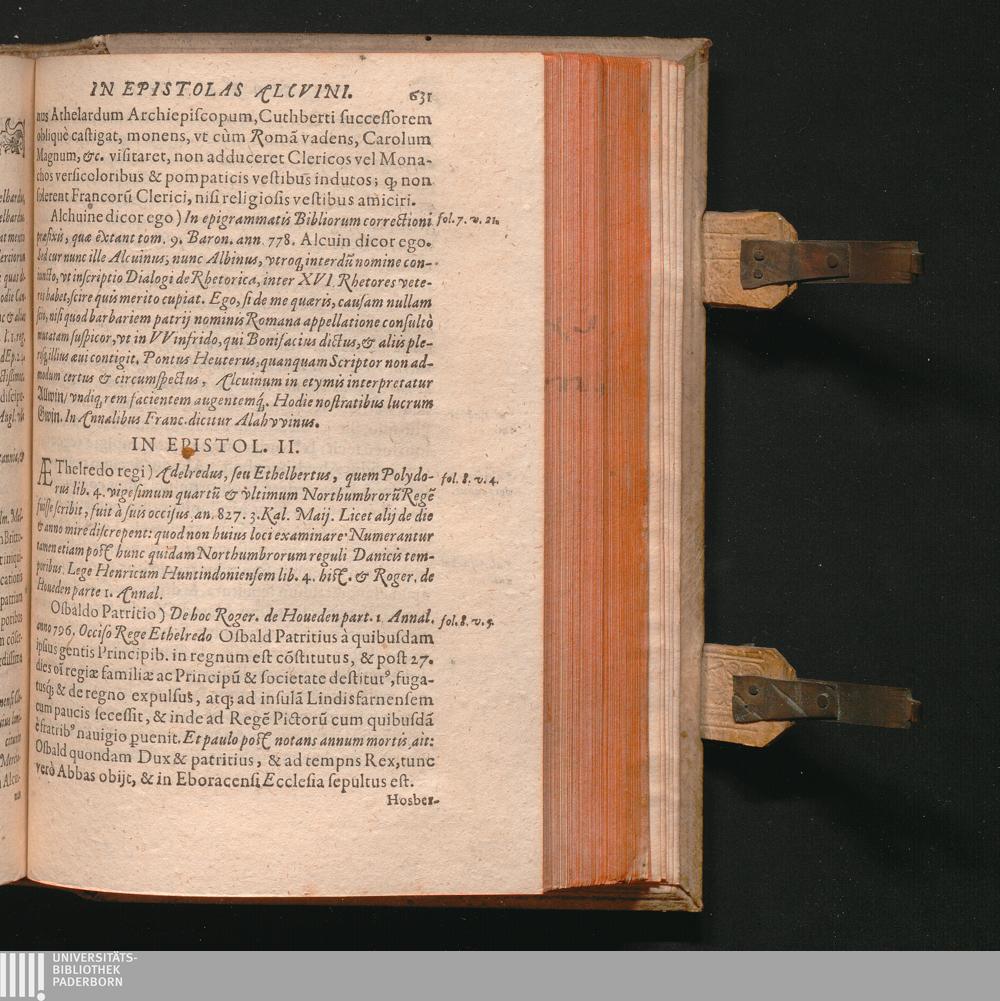 IN EPISTOLAS ALCVINI. 631
nus Athelardum Archiepiscopum, Cuthberti successorem
obliquè castigat, monens, vt cùm Romã vadens, Carolum
Magnum, &c. visitaret, non adduceret Clericos vel Mona-
chos versicoloribus & pompaticis vestibus indutos; q, non
solerent Francorũ Clerici, nisi religiosis vestibus amiciri.
Alchuine dicor ego) In epigrammatis Bibliorum correctioni fol. 7. v. 21.
præfixis, quæ extant tom. 9. Baron. ann. 778. Alcuin dicor ego.
Sed cur nunc ille Alcuinus, nunc Albinus, vtroq, interdũ nomine con-
iuncto, vt inscriptio Dialogi de Rhetorica, inter XVI. Rhetores vete-
res habet, scire quis merito cupiat. Ego, si de me quæris, causam nullam
scio, nisi quod barbariem patrij nominis Romana appellatione consultò
mutatam suspicor, vt in VVinfrido, qui Bonifacius dictus, & aliis ple-
risq, illius æui contigit. Pontus Heuterus, quanquam Scriptor non ad-
modum certus & circumspectus, Alcuinum in etymis interpretatur
Allwin/ vndiq, rem facientem augentemq́. Hodie nostratibus lucrum
Gwin. In Annalibus Franc. dicitur Alahvvinus.
IN EPISTOL. II.
ÆThelredo regi) Adelredus, seu Ethelbertus, quem Polydo- fol. 8. v. 4.
rus lib. 4. vigesimum quartũ & vltimum Northumbrorũ Regẽ
fuisse scribit, fuit à suis occisus an. 827. 3. Kal. Maij. Licet alij de die
& anno mirè discrepent: quod non huius loci examinare. Numerantur
tamen etiam post hunc quidam Northumbrorum reguli Danicis tem-
poribus. Lege Henricum Huntindoniensem lib. 4. hist. & Roger. de
Houeden parte 1. Annal.
Osbaldo Patritio) De hoc Roger. de Houeden part. 1. Annal. fol. 8. v. 5.
anno 796. Occiso Rege Ethelredo Osbald Patritius à quibusdam
ipsius gentis Principib. in regnum est cõstitutus, & post 27.
dies oĩ regiæ familiæ ac Principũ & societate destitutꝰ, fuga-
tusq́; & de regno expulsus, atq; ad insulã Lindisfarnensem
cum paucis secessit, & inde ad Regẽ Pictorũ cum quibusdã
è fratribꝰ nauigio puenit. Et paulo post notans annum mortis, ait:
Osbald quondam Dux & patritius, & ad tempns Rex, tunc
verò Abbas obijt, & in Eboracensi Ecclesia sepultus est.
Hosber-
UNIVERSITÄTS-
BIBLIOTHEK
PADERBORN